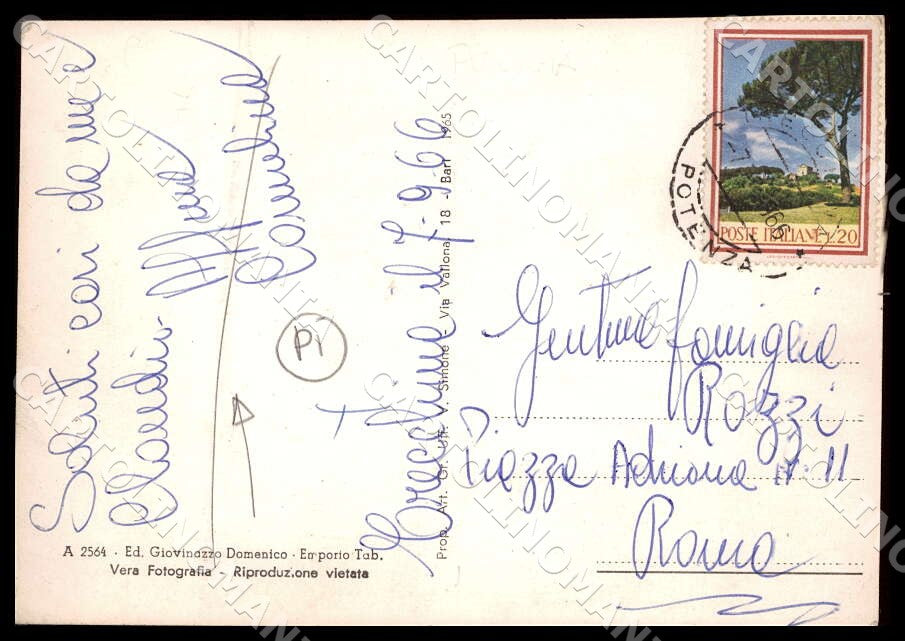 Saluti cari da me e
Claudio
Carmelina
il 7-9-66
Prop. Art. Gr. Uff. V. Simone - Via Vallona, 18 - Bari 1965
Pi
A 2564 - Ed. Giovinazzo Domenico - Emporio Tab.
Vera Fotografia - Riproduzione vietata
POSTE ITALIANE L. 20
POTENZA
Gentime famiglia
Rozzi
Piazza Adriana N. 11
Roma
CARTOLINOMANIA